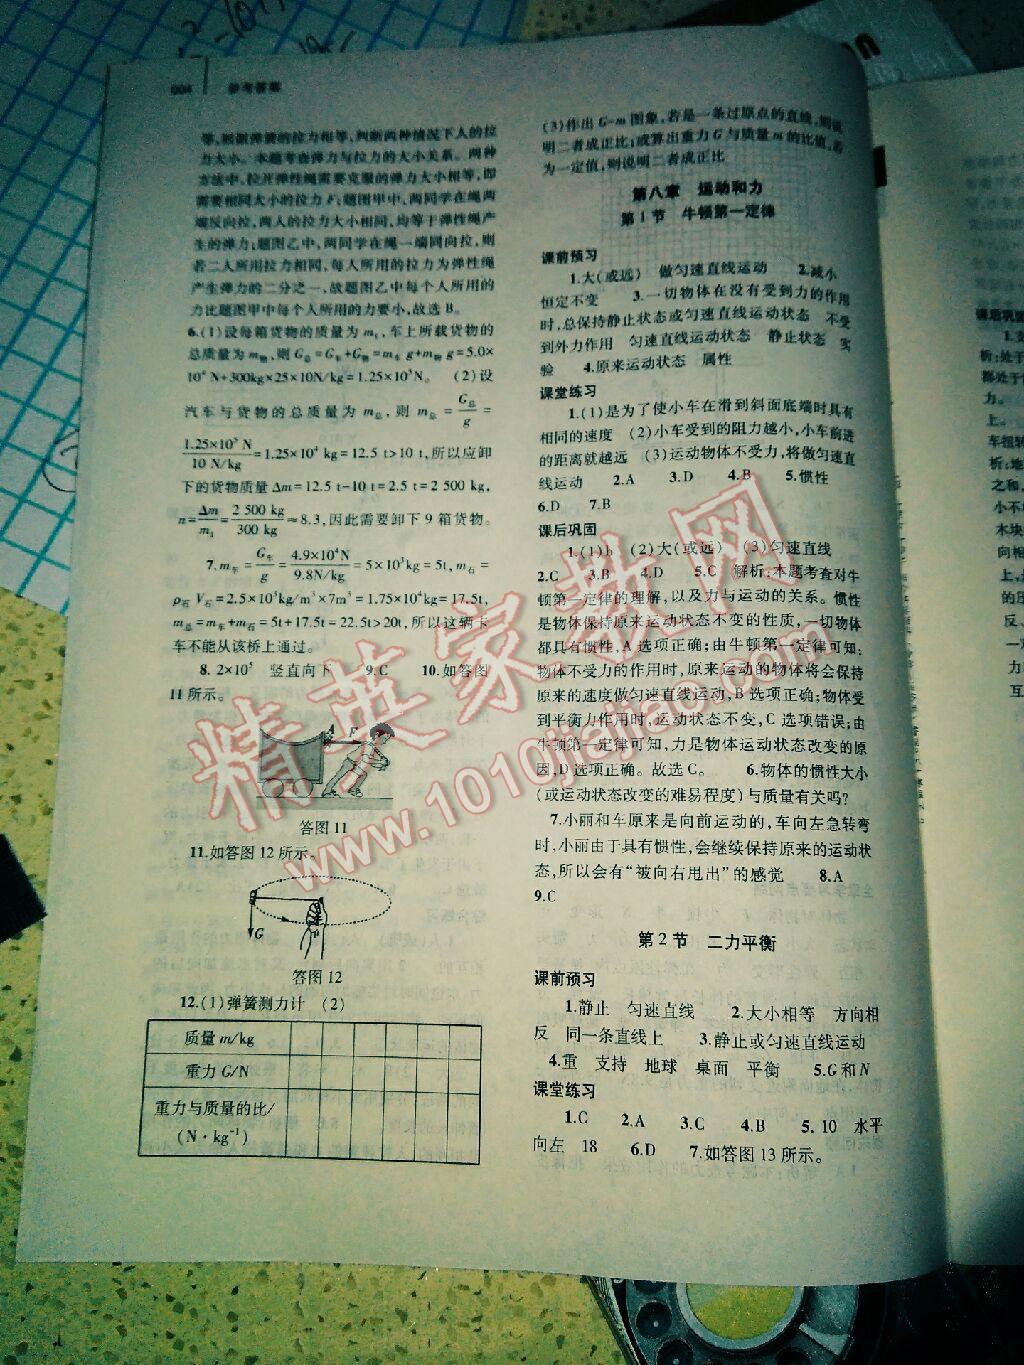 004 参考答案
等,根据弹簧的拉力相等,判断两种情况下人的拉
力大小。本题考查弹力与拉力的大小关系。两种
方法中,拉开弹性绳需要克服的弹力大小相等,即
需要相同大小的拉力F;题图甲中,两同学在绳两
端反向拉,两人的拉力大小相同,均等于弹性绳产
生的弹力;题图乙中,两同学在绳一端同向拉,则
若二人所用拉力相同,每人所用的拉力为弹性绳
产生弹力的二分之一,故题图乙中每个人所用的
力比题图甲中每个人所用的力要小,故选B。
6.(1)设每箱货物的质量为m₁,车上所载货物的
总质量为m物,则G总=G车+G物=m车g+m物g=5.0×
10⁴N+300kg×25×10N/kg=1.25×10⁵N。 (2)设
汽车与货物的总质量为m总,则m总=G总/g=
1.25×10⁵ N/10 N/kg=1.25×10⁴ kg=12.5 t>10 t,所以应卸
下的货物质量Δm=12.5 t-10 t=2.5 t=2 500 kg,
n=Δm/m₁=2 500 kg/300 kg≈8.3,因此需要卸下9箱货物。
7.m车=G车/g=4.9×10⁴N/9.8N/kg=5×10³kg=5t,m石=
ρ石V石=2.5×10³kg/m³×7m³=1.75×10⁴kg=17.5t,
m总=m车+m石=5t+17.5t=22.5t>20t,所以这辆卡
车不能从该桥上通过。
8.2×10⁵ 竖直向下 9.C 10.如答图
11所示。
A F
答图11
11.如答图12所示。
G
答图12
12.(1)弹簧测力计 (2)
质量m/kg
重力G/N
重力与质量的比/
(N·kg⁻¹)
(3)作出G-m图象,若是一条过原点的直线,则说
明二者成正比;或算出重力G与质量m的比值,若
为一定值,则说明二者成正比
第八章 运动和力
第1节 牛顿第一定律
课前预习
1.大(或远) 做匀速直线运动 2.减小
恒定不变 3.一切物体在没有受到力的作用
时,总保持静止状态或匀速直线运动状态 不受
到外力作用 匀速直线运动状态 静止状态 实
验 4.原来运动状态 属性
课堂练习
1.(1)是为了使小车在滑到斜面底端时具有
相同的速度 (2)小车受到的阻力越小,小车前进
的距离就越远 (3)运动物体不受力,将做匀速直
线运动 2.A 3.D 4.B 5.惯性
6.D 7.B
课后巩固
1.(1)b (2)大(或远) (3)匀速直线
2.C 3.B 4.D 5.C 解析:本题考查对牛
顿第一定律的理解,以及力与运动的关系。惯性
是物体保持原来运动状态不变的性质,一切物体
都具有惯性,A选项正确;由牛顿第一定律可知:
物体不受力的作用时,原来运动的物体将会保持
原来的速度做匀速直线运动,B选项正确;物体受
到平衡力作用时,运动状态不变,C选项错误;由
牛顿第一定律可知,力是物体运动状态改变的原
因,D选项正确。故选C。 6.物体的惯性大小
(或运动状态改变的难易程度)与质量有关吗?
7.小丽和车原来是向前运动的,车向左急转弯
时,小丽由于具有惯性,会继续保持原来的运动状
态,所以会有“被向右甩出”的感觉 8.A
9.C
第2节 二力平衡
课前预习
1.静止 匀速直线 2.大小相等 方向相
反 同一条直线上 3.静止或匀速直线运动
4.重 支持 地球 桌面 平衡 5.G和N
课堂练习
1.C 2.A 3.C 4.B 5.10 水平
向左 18 6.D 7.如答图13所示。
精英家教网
www.1010jiajiao.com
课后巩固